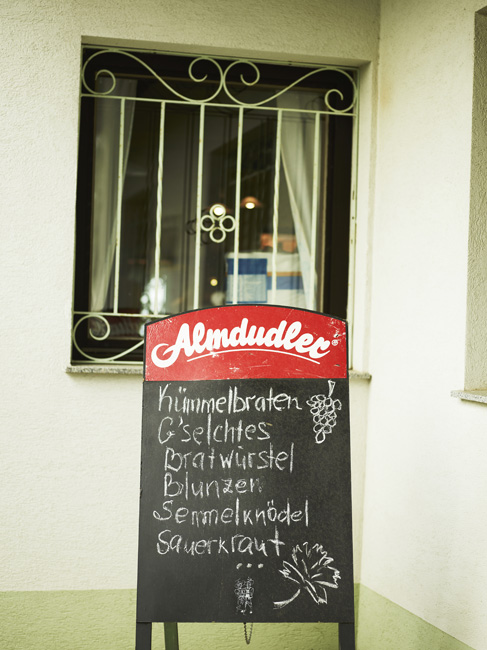 Almdudler®
Kümmelbraten
G'selchtes
Bratwürstel
Blunzen
Semmelknödel
Sauerkraut
...